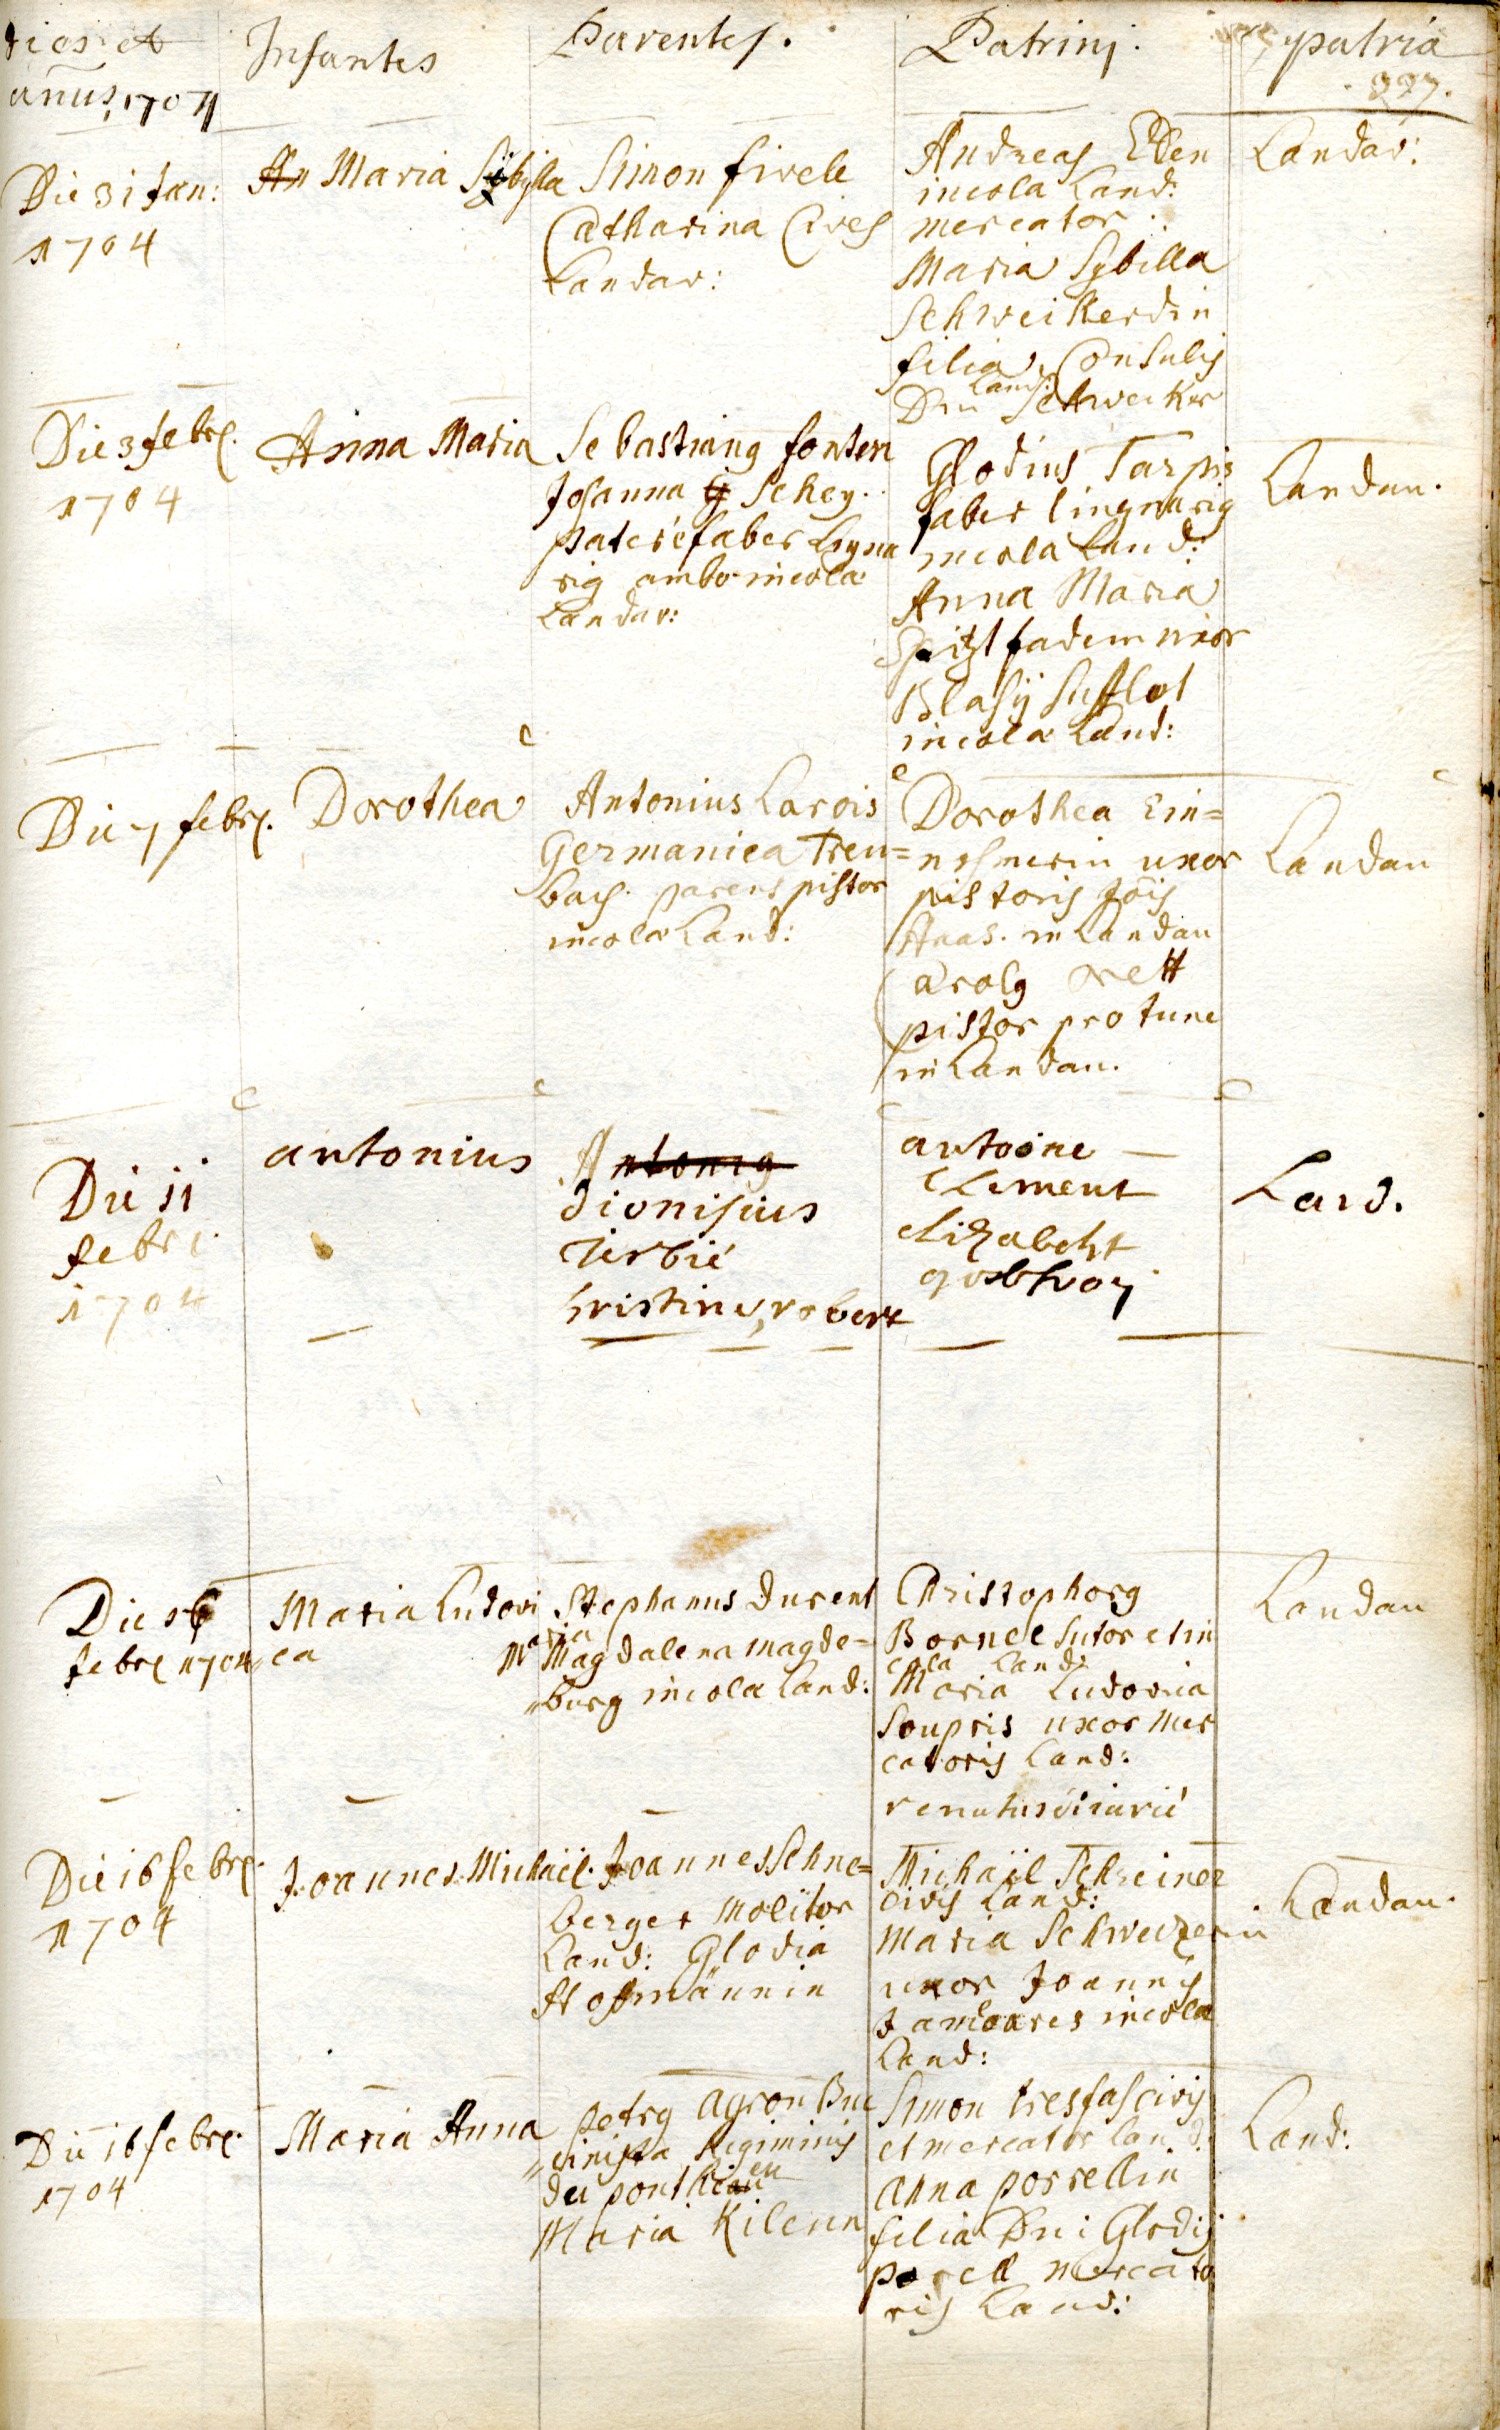 dies et Infantes Parentes. Patrinj. patria
annus 1704 227.
Die 31 Jan:
1704
An Maria Sybilla
Simon firele
Catharina Cives
Landav:
Andreas Etten
incola Land:
mercator.
Maria Sybilla
Schweikerdin
filia Consulis
Land:
Dni Schweiker
Landav:
Die 3 febr.
1704
Anna Maria
Sebastiang fonten
Johanna Schey.
pater è faber Ligna
rig ambo incola
Landav:
Glodius Tarpis
faber lingnarig
incola Land:
Anna Maria
Spitzlfadem uxor
Blasij Sufflot
incola Land:
Landau.
Die 7 febr.
Dorothea
Antonius Larois
Germanica Treu=
bach. parens pistor
incola Land:
Dorothea Ein=
nehmerin uxor
pistoris Jois
Haas. in Landau
Carolg rett
pistor pro tunc
in Landau.
Landau
Die 11
febr.
1704
antonius
Antonig
dionisius
Terbié
Cristine, robert
antoine
Clement
elizabeht
Land.
Die 16
febr 1704
Maria Ludovi
ca
Stephanus durent
Maria
Magdalena magde=
burg incola Land:
Christophorg
Bornee Sutor et in
cola Land:
Maria Ludovica
Soupris uxor Mer
catoris Land:
Landau
Die 16 febr.
1704
Joannes Michaël.
Joannes Schne=
berger Molitor
Land: Glodia
Hoffmännin
Michaël Schreiner
civis Land:
Maria Schweizerin
uxor Joannis
Jamloares incola
Land:
Landau.
Die 16 febr.
1704
Maria Anna
petrg agron Buc
cinista Regiminis
de ponthieu
Maria Kilenn
Simon tresfas civis
et mercator Land:
anna porrellin
filia Dni Glodij
porell mercato
ris Land:
Land: